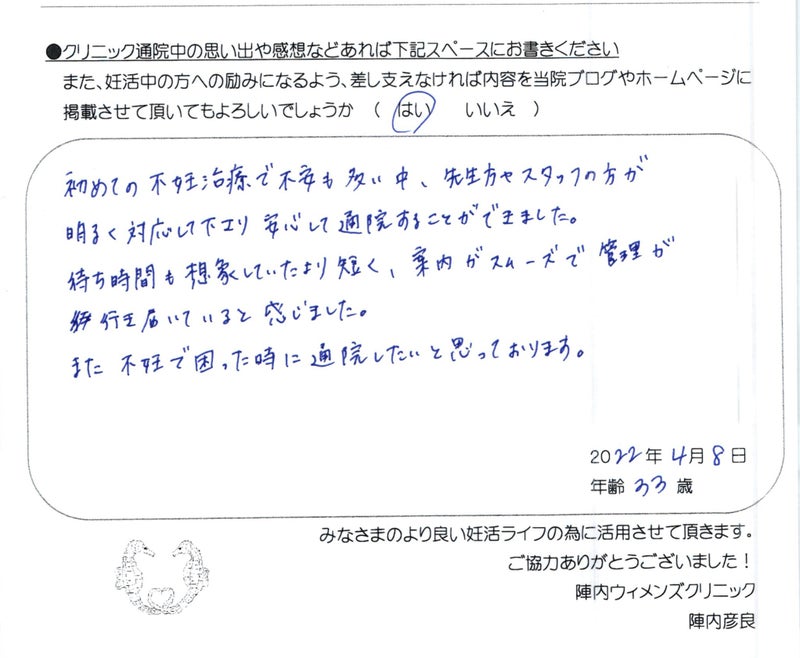 ●クリニック通院中の思い出や感想などあれば下記スペースにお書きください
また、妊活中の方への励みになるよう、差し支えなければ内容を当院ブログやホームページに
掲載させて頂いてもよろしいでしょうか ( はい いいえ )
初めての不妊治療で不安も多い中、先生方やスタッフの方が
明るく対応して下さり安心して通院することができました。
待ち時間も想象していたより短く、案内がスムーズで管理が
行き届いていると感じました。
また不妊で困った時に通院したいと思っております。
2022年4月8日
年齢 33歳
みなさまのより良い妊活ライフの為に活用させて頂きます。
ご協力ありがとうございました!
陣内ウィメンズクリニック
陣内彦良